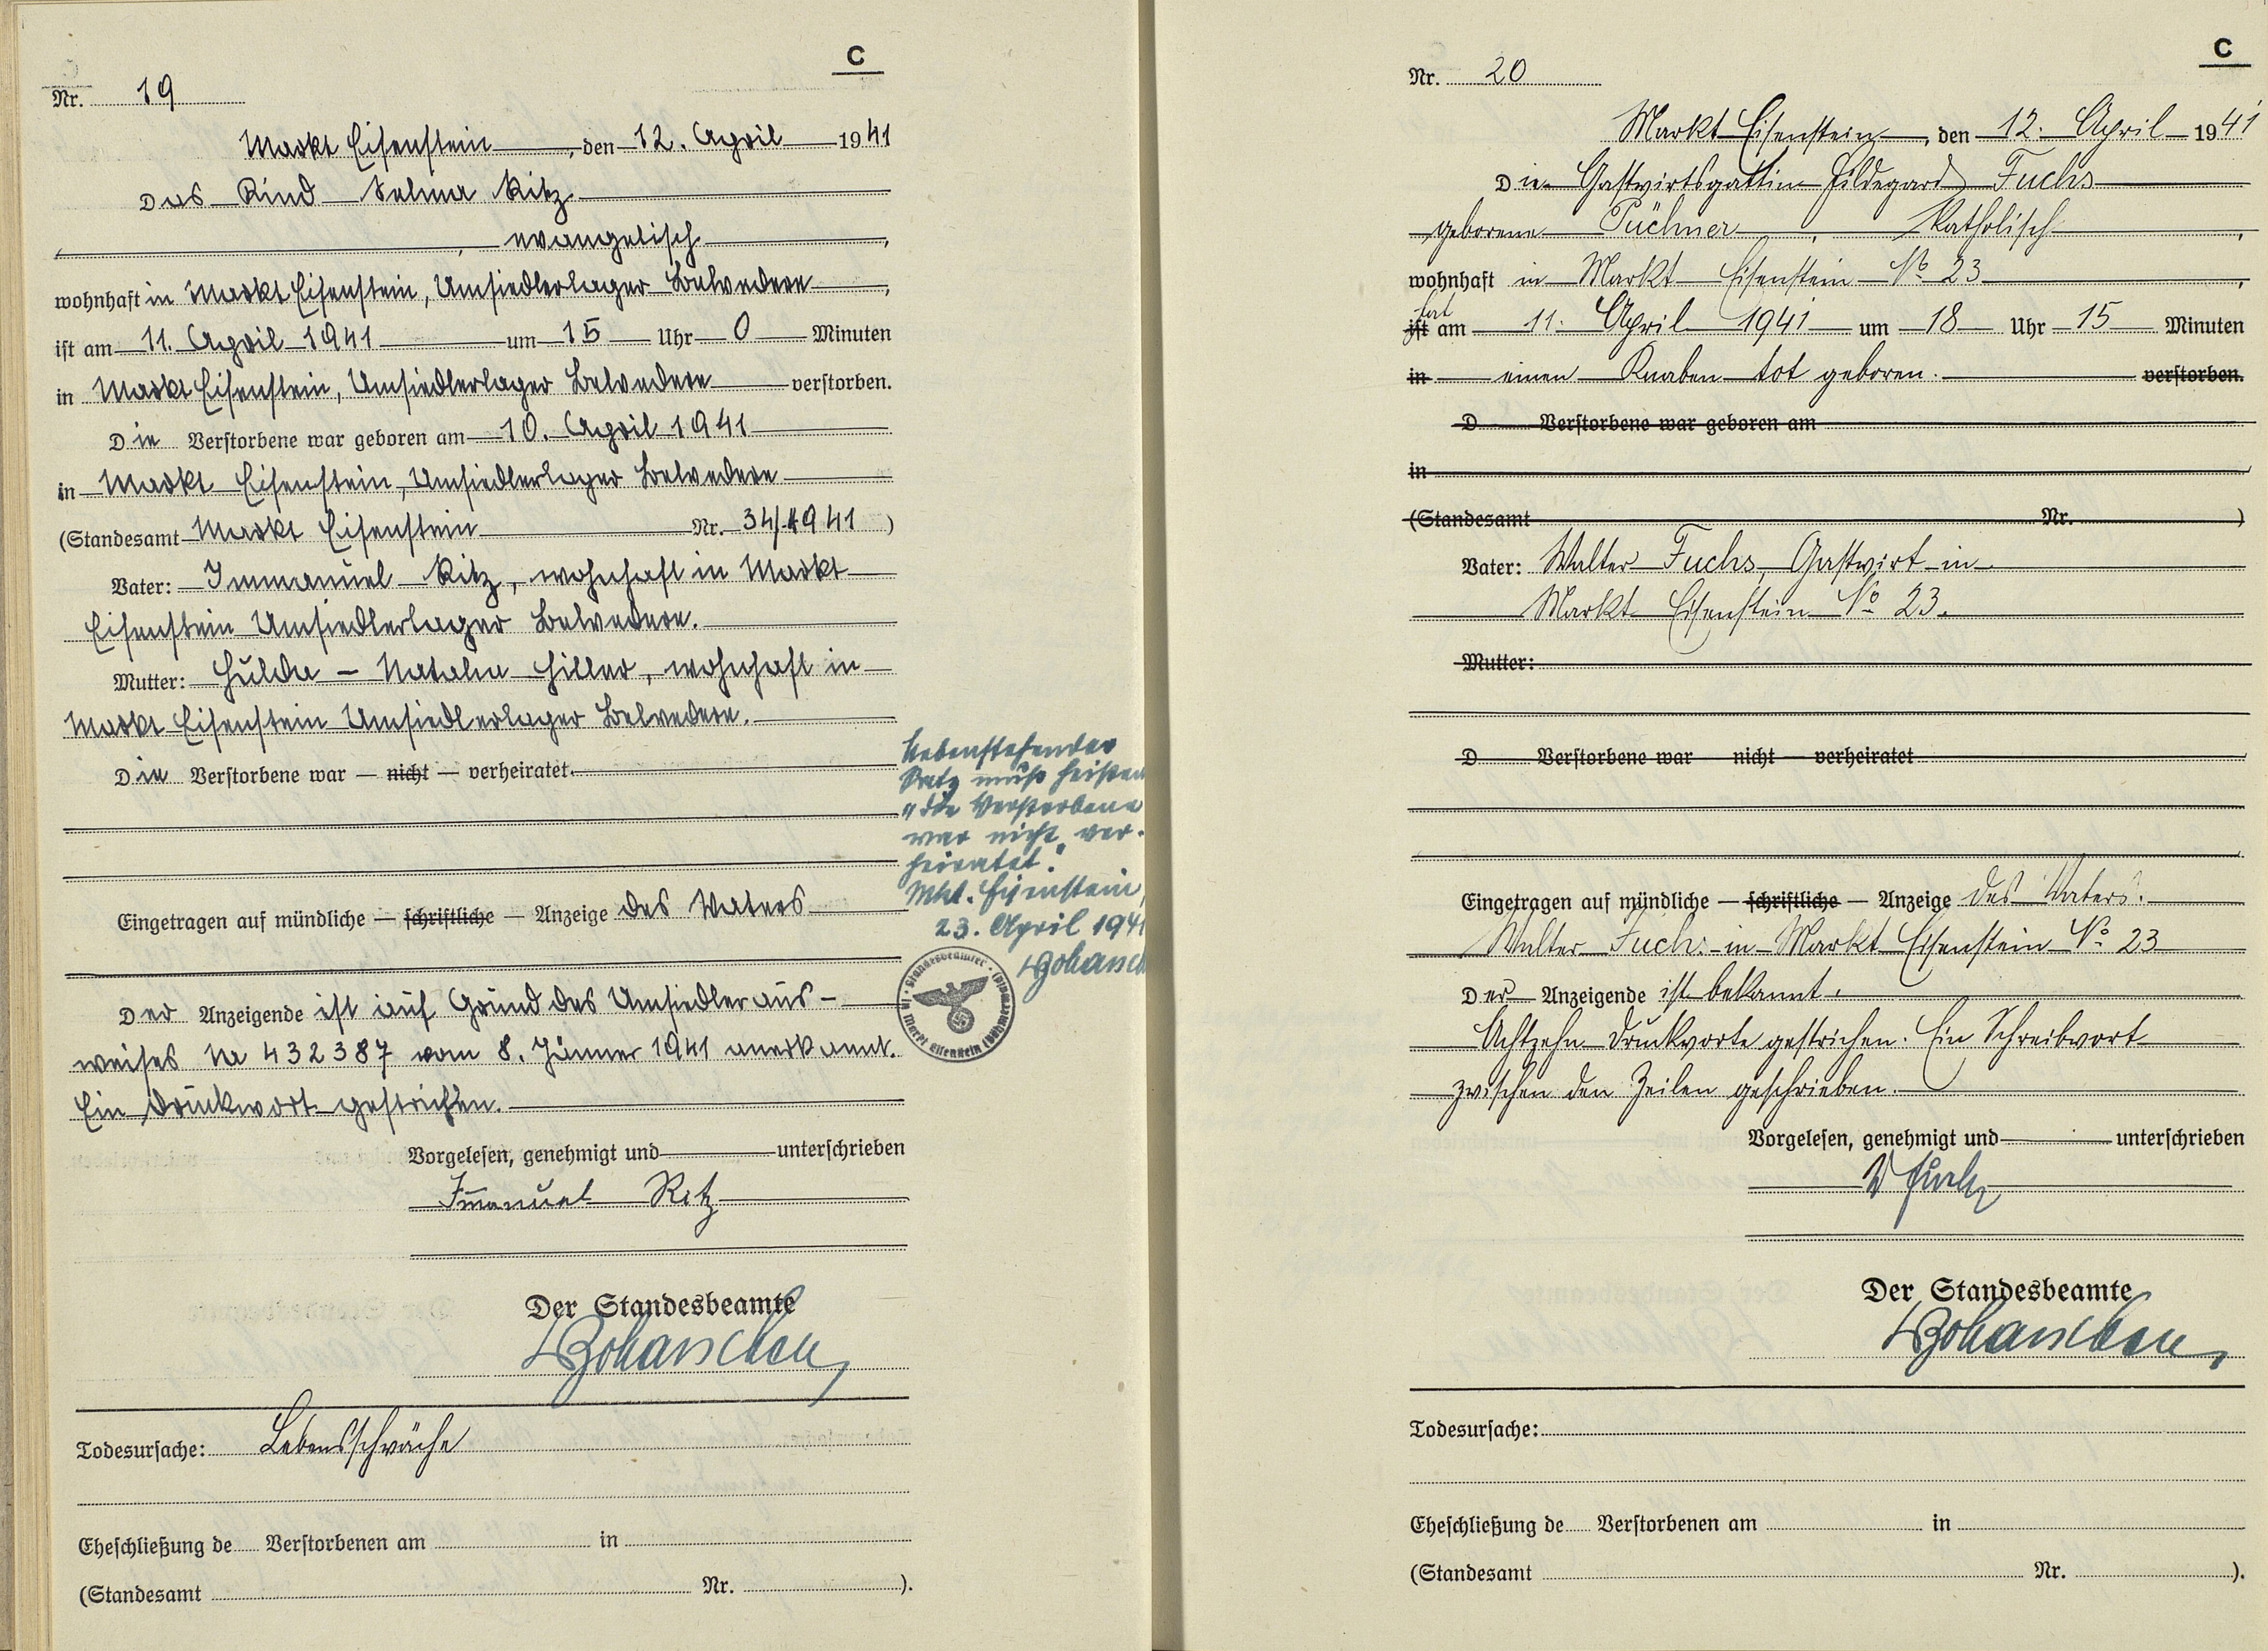 C
Nr. 19
Markt Eisenstein, den 12. April 1941
Das Kind Selma Ritz
, evangelisch,
wohnhaft in Markt Eisenstein, Umsiedlerlager Belvedere,
ist am 11. April 1941 um 15 Uhr 0 Minuten
in Markt Eisenstein, Umsiedlerlager Belvedere verstorben.
Die Verstorbene war geboren am 10. April 1941
in Markt Eisenstein, Umsiedlerlager Belvedere
(Standesamt Markt Eisenstein Nr. 34/1941)
Vater: Immanuel Ritz, wohnhaft in Markt
Eisenstein Umsiedlerlager Belvedere.
Mutter: Hulda - Natalie Hiller, wohnhaft in
Markt Eisenstein Umsiedlerlager Belvedere.
Die Verstorbene war — nicht — verheiratet.
Nebenstehender
Satz muß heißen
"die Verstorbene
war nicht ver-
heiratet."
Mkt. Eisenstein,
23. April 1941
Eingetragen auf mündliche — schriftliche — Anzeige des Vaters
Der Anzeigende ist auf Grund des Umsiedleraus-
weises Nr 432387 vom 8. Jänner 1941 anerkannt.
Ein Druckwort gestrichen.
Vorgelesen, genehmigt und unterschrieben
Immanuel Ritz
Der Standesbeamte
Todesursache: Lebensschwäche
Eheschließung de Verstorbenen am in
(Standesamt Nr. ).
C
Nr. 20
Markt Eisenstein, den 12. April 1941
Die Gastwirtsgattin Hildegard Fuchs
geborene Püchner, katholisch,
wohnhaft in Markt Eisenstein No 23,
hat
ist am 11. April 1941 um 18 Uhr 15 Minuten
in einen Knaben tot geboren. verstorben.
D Verstorbene war geboren am
in
(Standesamt Nr. )
Vater: Walter Fuchs, Gastwirt in
Markt Eisenstein No 23.
Mutter:
D Verstorbene war nicht verheiratet
Eingetragen auf mündliche — schriftliche — Anzeige des Vaters.
Walter Fuchs in Markt Eisenstein No 23
Der Anzeigende ist bekannt.
Achtzehn Druckworte gestrichen. Ein Schreibwort
zwischen den Zeilen geschrieben.
Vorgelesen, genehmigt und unterschrieben
W Fuchs
Der Standesbeamte
Todesursache:
Eheschließung de Verstorbenen am in
(Standesamt Nr. ).